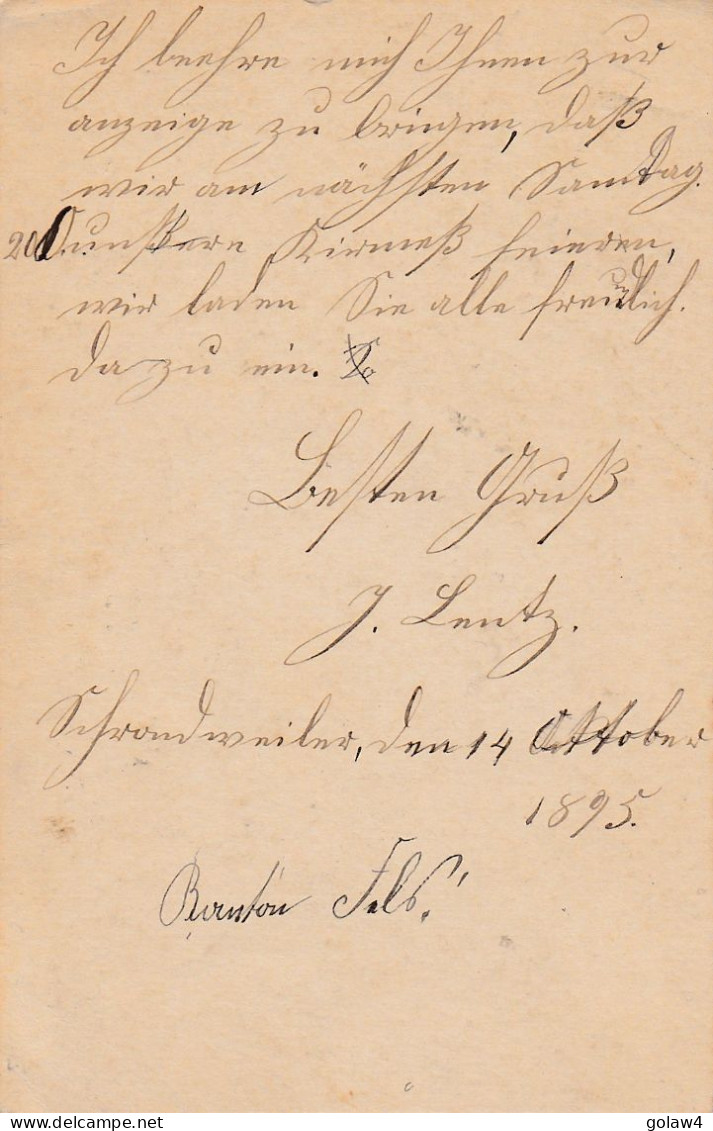 Ich beehre mich Ihnen zur
anzeige zu bringen, daß
wir am nächsten Samstag.
20. unsere Kirmeß feieren,
wir laden Sie alle freundlich.
dazu ein.
Besten Gruß
J. Lentz.
Schrondweiler, den 14 Oktober
1895.
Kanton Fels!
delcampe.net
golaw4